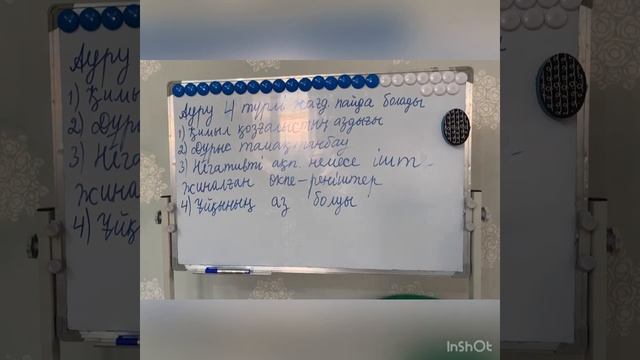 Ауру 4 түрлі жағд. пайда болады
1) Қимыл қозғалыстың аздығы
2) Дұрыс тамақтанбау
3) Негативті ақп. немесе ішт-
жиналған өкпе-реніштер
4) Ұйқының аз болуы
InShOt